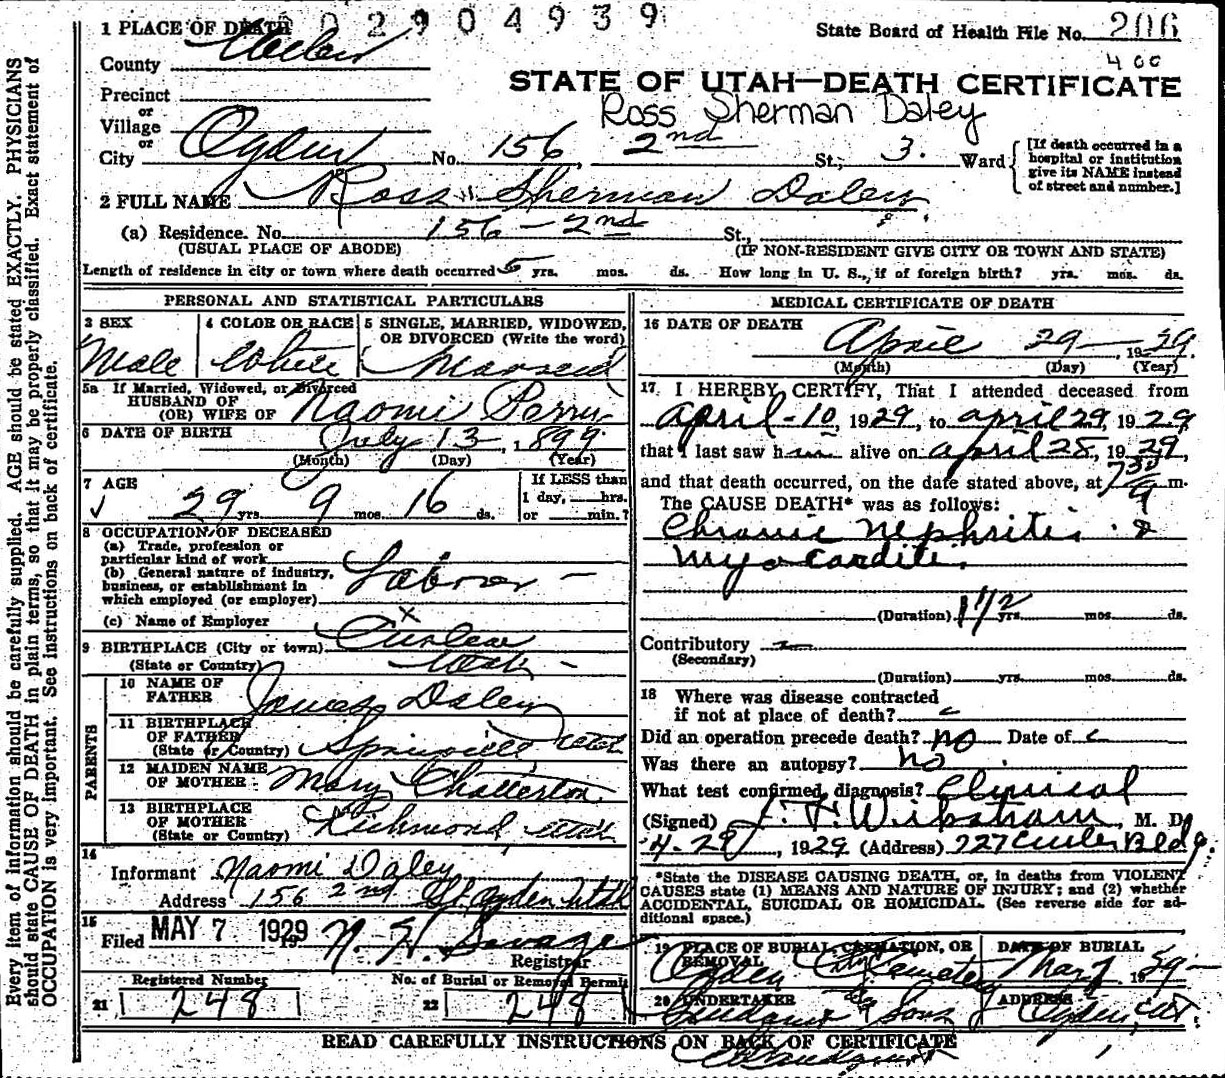 02904939
1 PLACE OF DEATH
State Board of Health File No. 206
County Weber
400
STATE OF UTAH—DEATH CERTIFICATE
Precinct
or
Village
Ross Sherman Daley
or
City Ogden No. 156, 2nd St., 3. Ward
[If death occurred in a hospital or institution give its NAME instead of street and number.]
2 FULL NAME Ross Sherman Daley
(a) Residence. No. 156 - 2nd St.,
(USUAL PLACE OF ABODE) (IF NON-RESIDENT GIVE CITY OR TOWN AND STATE)
Length of residence in city or town where death occurred 5 yrs. mos. ds. How long in U. S., if of foreign birth? yrs. mos. ds.
PERSONAL AND STATISTICAL PARTICULARS
3 SEX 4 COLOR OR RACE 5 SINGLE, MARRIED, WIDOWED, OR DIVORCED (Write the word)
Male White Married
5a If Married, Widowed, or Divorced
HUSBAND OF
(OR) WIFE OF Naomi Perry
6 DATE OF BIRTH July 13, 1899
(Month) (Day) (Year)
7 AGE If LESS than
29 yrs. 9 mos. 16 ds. 1 day, hrs.
or min.?
8 OCCUPATION OF DECEASED
(a) Trade, profession or
particular kind of work Laborer -
(b) General nature of industry,
business, or establishment in
which employed (or employer)
(c) Name of Employer X
9 BIRTHPLACE (City or town) Curlew
(State or Country) Utah -
PARENTS
10 NAME OF
FATHER James Daley
11 BIRTHPLACE
OF FATHER
(State or Country) Springville Utah
12 MAIDEN NAME
OF MOTHER Mary Chatterton
13 BIRTHPLACE
OF MOTHER
(State or Country) Richmond, Utah
14
Informant Naomi Daley
Address 156 2nd St. Ogden Utah
15
Filed MAY 7 1929 N. H. Savage
Registrar
Registered Number No. of Burial or Removal Permit
21 248 22 248
MEDICAL CERTIFICATE OF DEATH
16 DATE OF DEATH
April 29 - 1929.
(Month) (Day) (Year)
17. I HEREBY CERTIFY, That I attended deceased from
April - 10, 1929, to april 29, 1929
that I last saw him alive on april 28, 1929,
and that death occurred, on the date stated above, at 7 30 a m.
The CAUSE DEATH* was as follows:
Chronic nephritis &
myocarditis
(Duration) 1 1/2 yrs. mos. ds.
Contributory -
(Secondary)
(Duration) yrs. mos. ds.
18 Where was disease contracted
if not at place of death? -
Did an operation precede death? no Date of
Was there an autopsy? no
What test confirmed diagnosis? Clinical
(Signed) M. D.
4-29, 1929 (Address) 727 Bldg.
*State the DISEASE CAUSING DEATH, or, in deaths from VIOLENT
CAUSES state (1) MEANS AND NATURE OF INJURY; and (2) whether
ACCIDENTAL, SUICIDAL OR HOMICIDAL. (See reverse side for ad-
ditional space.)
19 PLACE OF BURIAL, CREMATION, OR REMOVAL DATE OF BURIAL
Ogden City Cemetery May 1929 -
20 UNDERTAKER ADDRESS
& Sons Ogden, Ut.
READ CAREFULLY INSTRUCTIONS ON BACK OF CERTIFICATE
Every item of information should be carefully supplied. AGE should be stated EXACTLY. PHYSICIANS
should state CAUSE OF DEATH in plain terms, so that it may be properly classified. Exact statement of
OCCUPATION is very important. See instructions on back of certificate.